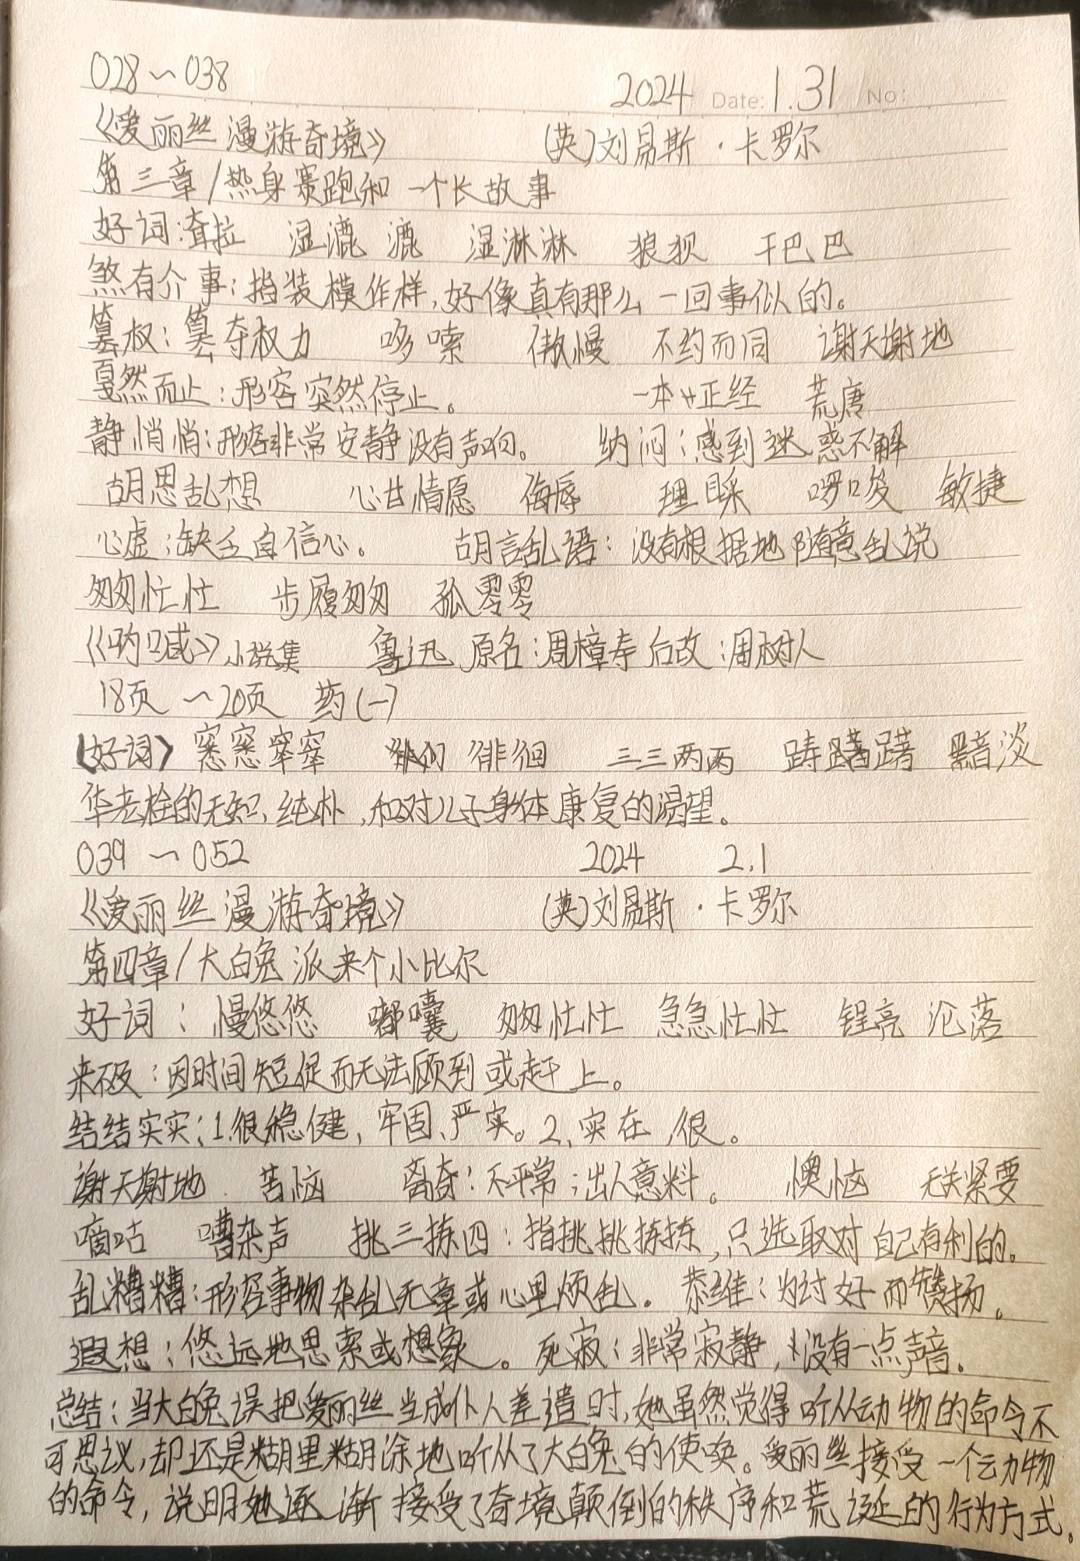 028～038 2024 Date: 1.31 No:
《爱丽丝漫游奇境》 (英)刘易斯·卡罗尔
第三章/热身赛跑和一个长故事
好词:耷拉 湿漉漉 湿淋淋 狼狈 干巴巴
煞有介事:指装模作样,好像真有那么一回事似的。
篡权:篡夺权力 哆嗦 傲慢 不约而同 谢天谢地
戛然而止:形容突然停止。 一本正经 荒唐
静悄悄:形容非常安静没有声响。 纳闷:感到迷惑不解
胡思乱想 心甘情愿 侮辱 理睬 啰唆 敏捷
心虚:缺乏自信心。 胡言乱语:没有根据地随意乱说
匆匆忙忙 步履匆匆 孤零零
《呐喊》小说集 鲁迅 原名:周樟寿 后改:周树人
18页～20页 药(一)
(好词) 窸窸窣窣 徘徊 三三两两 踌躇 黯淡
华老栓的无知、纯朴,和对儿子身体康复的渴望。
039～052 2024 2.1
《爱丽丝漫游奇境》 (英)刘易斯·卡罗尔
第四章/大白兔派来个小比尔
好词: 慢悠悠 嘟囔 匆匆忙忙 急急忙忙 锃亮 沦落
来不及:因时间短促而无法顾到或赶上。
结结实实:1.很稳健,牢固、严实。2、实在,很。
谢天谢地 苦恼 离奇:不平常;出人意料。 懊恼 无关紧要
嘀咕 嘈杂声 挑三拣四:指挑挑拣拣,只选取对自己有利的。
乱糟糟:形容事物杂乱无章或心里烦乱。 恭维:为讨好而赞扬。
遐想:悠远地思索或想象。 死寂:非常寂静,没有一点声音。
总结:当大白兔误把爱丽丝当成仆人差遣时,她虽然觉得听从动物的命令不
可思议,却还是糊里糊涂地听从了大白兔的使唤。爱丽丝接受一个动物
的命令,说明她逐渐接受了奇境颠倒的秩序和荒诞的行为方式。